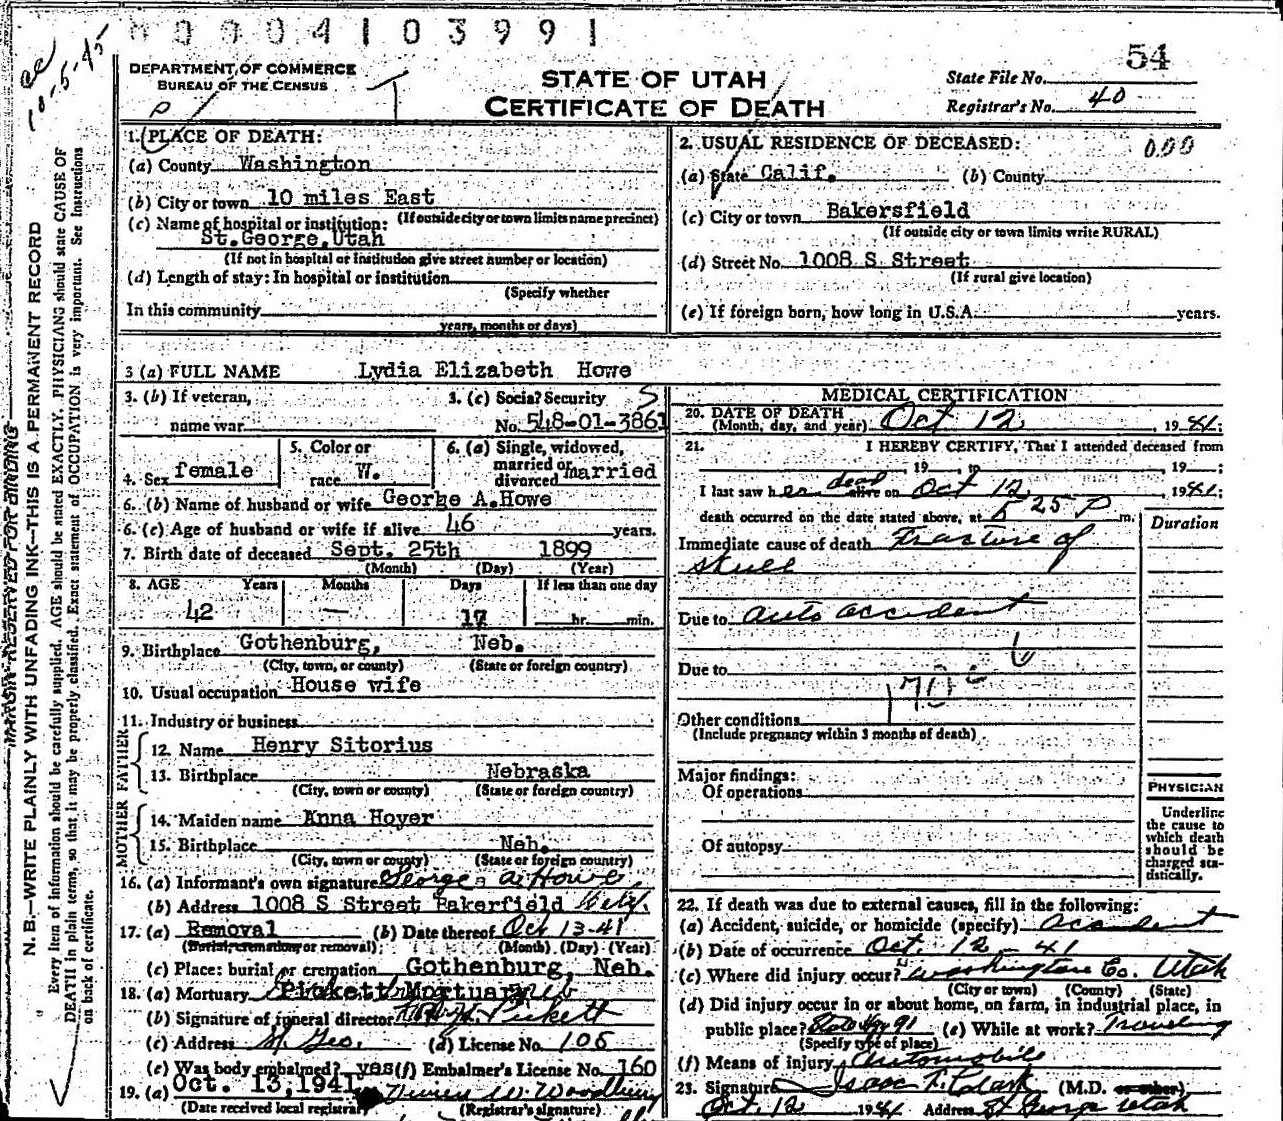 M00041 03991
54
DEPARTMENT OF COMMERCE
BUREAU OF THE CENSUS
STATE OF UTAH
CERTIFICATE OF DEATH
State File No.
Registrar's No. 40
1. PLACE OF DEATH:
(a) County Washington
(b) City or town 10 miles East
(If outside city or town limits name precinct)
(c) Name of hospital or institution:
St.George,Utah
(If not in hospital or institution give street number or location)
(d) Length of stay: In hospital or institution
(Specify whether
In this community
years, months or days)
2. USUAL RESIDENCE OF DECEASED: 000
(a) State Calif. (b) County
(c) City or town Bakersfield
(If outside city or town limits write RURAL)
(d) Street No. 1008 S Street
(If rural give location)
(e) If foreign born, how long in U.S.A. years.
3 (a) FULL NAME Lydia Elizabeth Howe
3. (b) If veteran,
name war
3. (c) Social Security S
No. 548-01-3861
4. Sex female
5. Color or
race W.
6. (a) Single, widowed,
married or
divorced married
6. (b) Name of husband or wife George A.Howe
6. (c) Age of husband or wife if alive 46 years.
7. Birth date of deceased Sept. 25th 1899
(Month) (Day) (Year)
8. AGE Years Months Days If less than one day
42 — 17 hr. min.
9. Birthplace Gothenburg, Neb.
(City, town, or county) (State or foreign country)
10. Usual occupation House wife
11. Industry or business
FATHER
12. Name Henry Sitorius
13. Birthplace Nebraska
(City, town or county) (State or foreign country)
MOTHER
14. Maiden name Anna Hoyer
15. Birthplace Neb.
(City, town or county) (State or foreign country)
16. (a) Informant's own signature George A. Howe
(b) Address 1008 S Street Bakerfield
17. (a) Removal (b) Date thereof Oct 13-41
(Burial, cremation or removal) (Month) (Day) (Year)
(c) Place: burial or cremation Gothenburg, Neb.
18. (a) Mortuary Pickett Mortuary
(b) Signature of funeral director Pickett
(c) Address St. Geo. (d) License No. 105
(e) Was body embalmed? yes (f) Embalmer's License No. 160
19. (a) Oct. 13,1941 W. Woodbury
(Date received local registrar) (Registrar's signature)
MEDICAL CERTIFICATION
20. DATE OF DEATH
(Month, day, and year) Oct 12, 1941;
21. I HEREBY CERTIFY, That I attended deceased from
, 19 , to , 19 ;
I last saw her dead alive on Oct 12, 1941;
death occurred on the date stated above, at 5 25 P m.
Duration
Immediate cause of death Fracture of
skull
Due to auto accident
Due to
170c
Other conditions
(Include pregnancy within 3 months of death)
Major findings:
Of operations
Of autopsy
PHYSICIAN
Underline
the cause to
which death
should be
charged sta-
tistically.
22. If death was due to external causes, fill in the following:
(a) Accident, suicide, or homicide (specify) accident
(b) Date of occurrence Oct. 12 - 41
(c) Where did injury occur? Washington Co. Utah
(City or town) (County) (State)
(d) Did injury occur in or about home, on farm, in industrial place, in
public place? State Hwy 91 (e) While at work? Traveling
(Specify type of place)
(f) Means of injury Automobile
23. Signature Isaac K. Clark (M.D. or other)
Oct. 12 1941 Address St George Utah
MARGIN RESERVED FOR BINDING
N. B.—WRITE PLAINLY WITH UNFADING INK—THIS IS A PERMANENT RECORD
Every item of information should be carefully supplied. AGE should be stated EXACTLY. PHYSICIANS should state CAUSE OF
DEATH in plain terms, so that it may be properly classified. Exact statement of OCCUPATION is very important. See Instructions
on back of certificate.